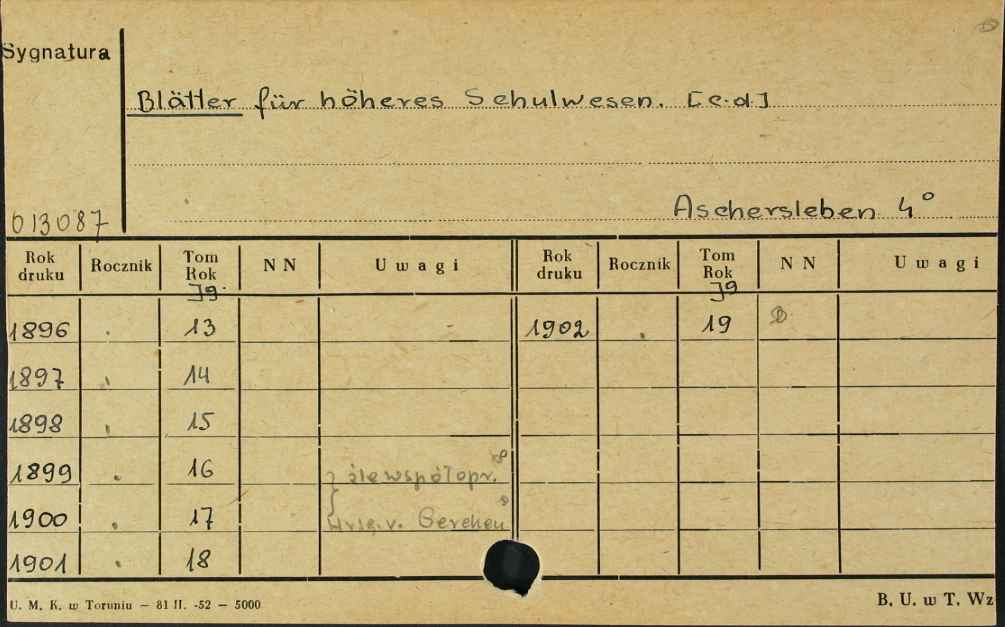 Sygnatura
Blätter für höheres Schulwesen. [c.d.]
Aschersleben 4°
013087
Rok druku Rocznik Tom Rok NN Uwagi Rok druku Rocznik Tom Rok NN Uwagi
Jg. Jg
1896 13 1902 19
1897 14
1898 15
1899 16
1900 17
1901 18
U. M. K. w Toruniu — 81 II. -52 — 5000
B. U. w T. Wz